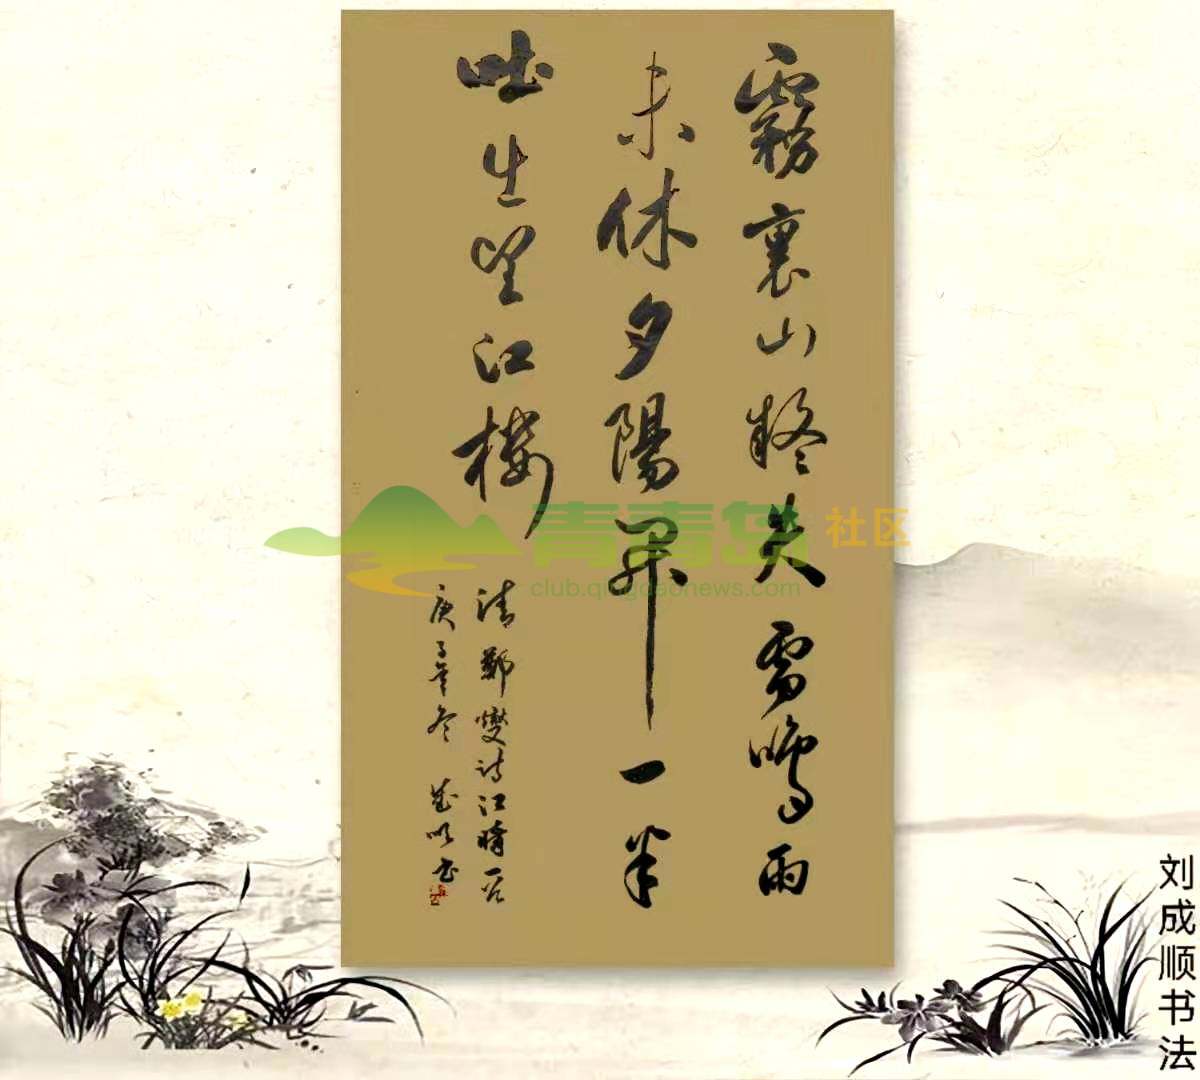 霧裏山疑失雷鳴雨
未休夕陽開一半
吐出望江樓
清鄭燮詩江晴一首
庚子年冬 成順书
青青岛社区
club.qingdaonews.com
刘成顺书法